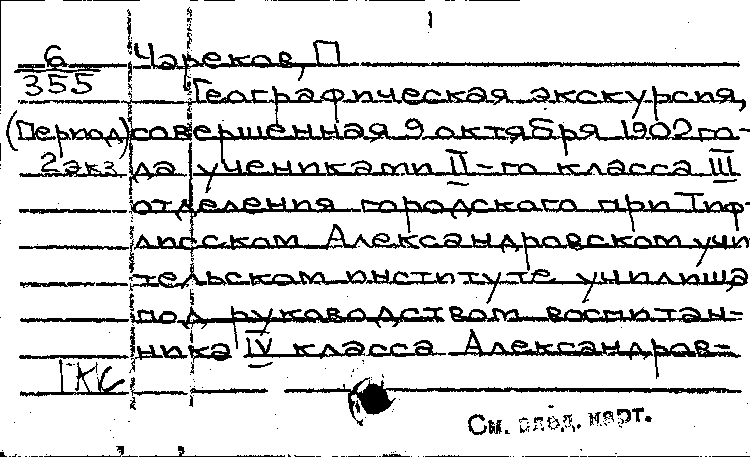 1
6 Чареков, П
355 Географическая экскурсия,
(Период) совершенная 9 октября 1902 го-
2 экз да учениками II-го класса III
отделения городского при Тиф-
лисском Александровском учи-
тельском институте училища
под руководством воспитан-
ника IV класса Александров-
ГКС
См. след. карт.